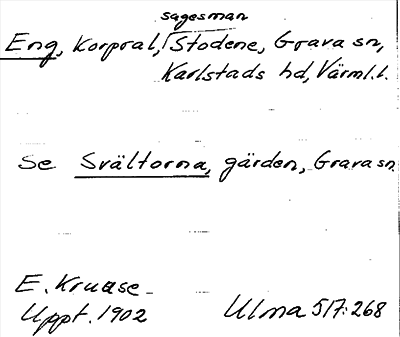 sagesman
Eng, Korpral, Stodene, Grava sn,
Karlstads hd, Värml.l.
Se Svältorna, gärden, Grava sn.
E. Kruuse
Uppt. 1902 Ulma 517:268